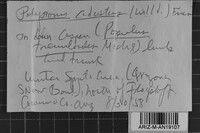 Polyporus adustus (Willd.) Fr
on dead Aspen (Populus
tremuloides Michx) limb
and trunk
Winter Sports Area, (Arizona
Snow Bowl), North of Flagstaff
Coconino Co. Ariz 8/30/58
ARIZ-M-AN19107